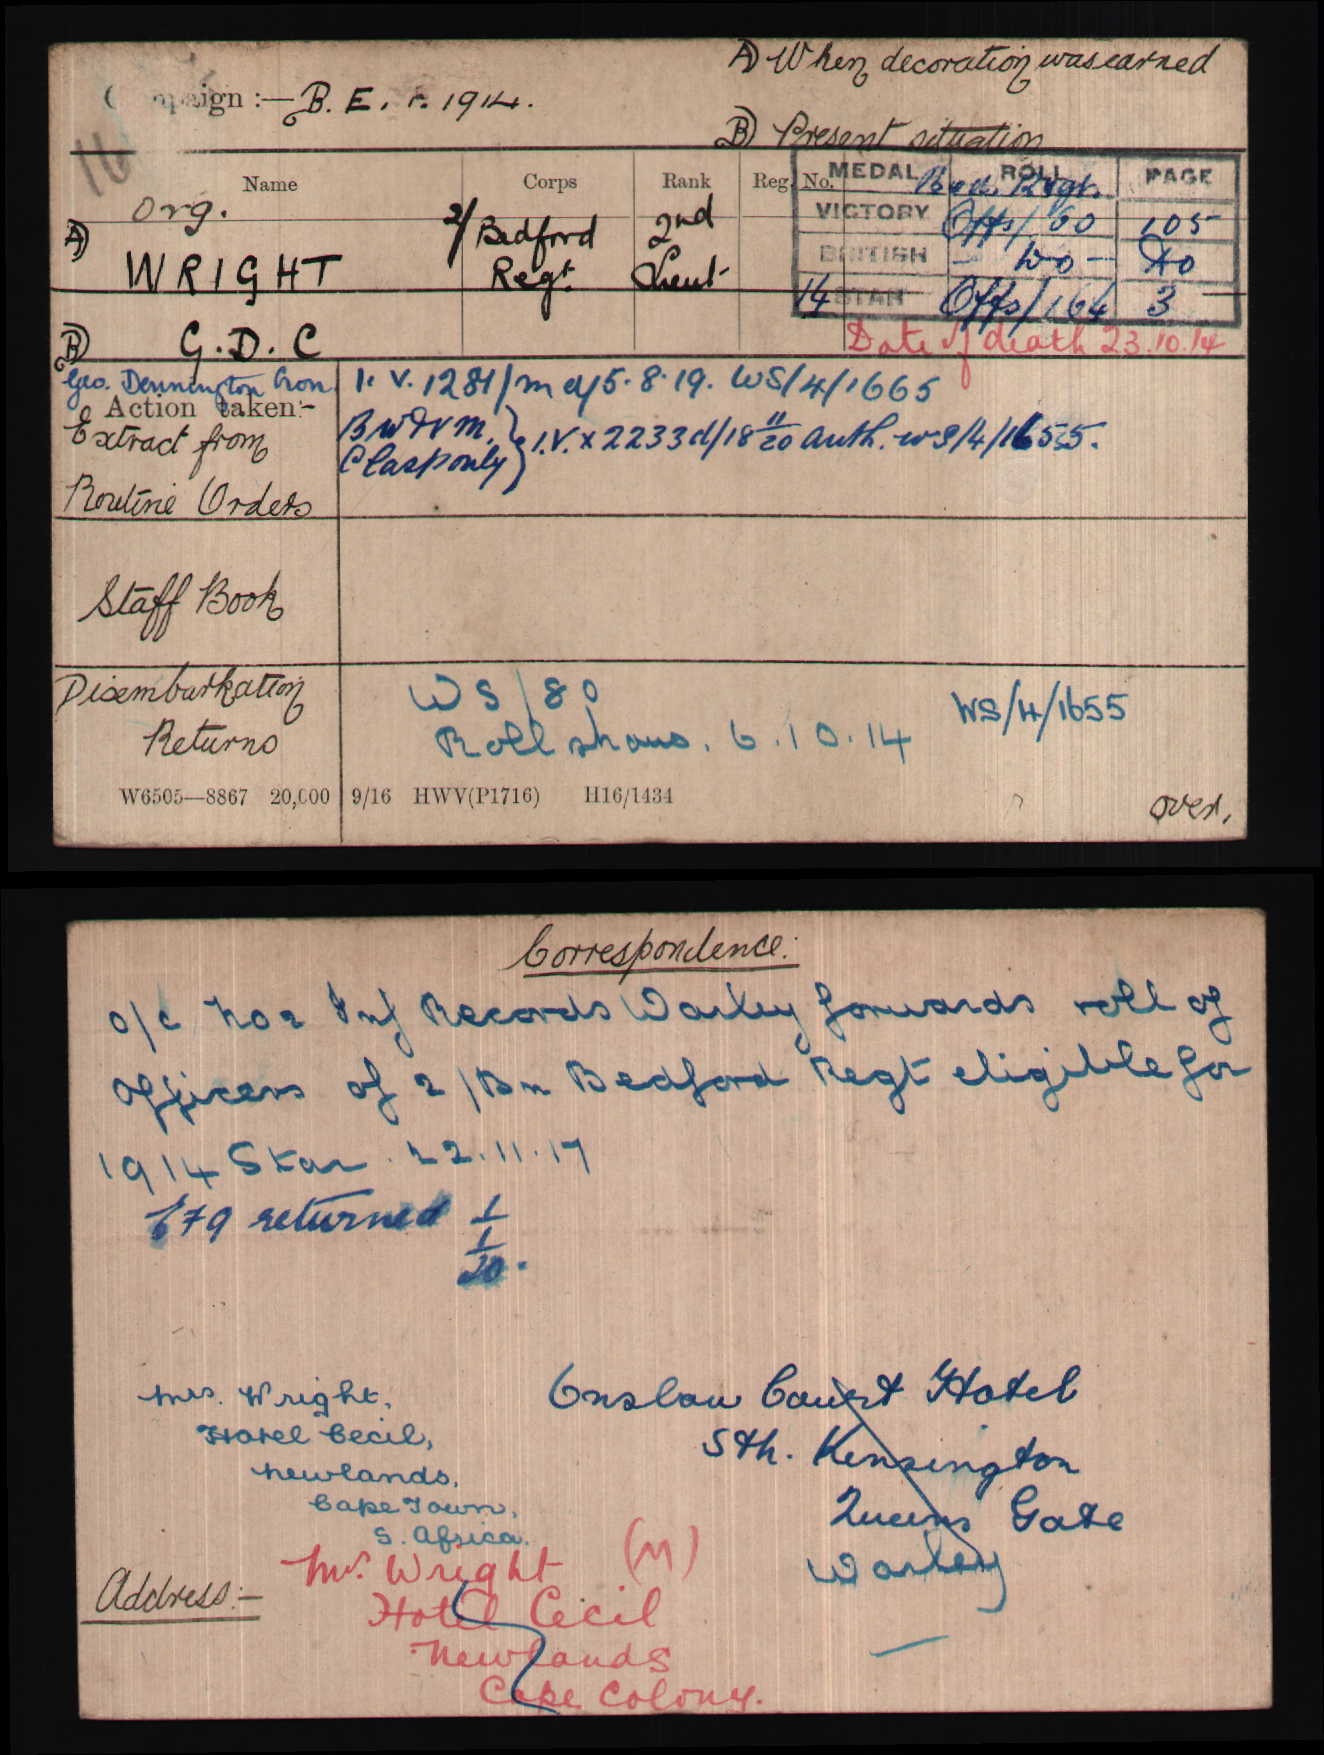 A) When decoration was earned
Campaign :— B. E. F. 1914.
B) Present situation
16
Name Corps Rank Reg. No.
MEDAL ROLL PAGE
Bed. Regt.
Org.
VICTORY Offs/60 105
A) WRIGHT 2/ Bedford Regt. 2nd Lieut
BRITISH — do — do
14 STAR Offs/164 3
B) G. D. C
Date of death 23.10.14
Geo. Dennington Cron.
Action taken:-
I. V. 1281/m d/5.8.19. WS/4/1665
Extract from
B W & V M. Clasp only } I.V. x 2233d/18 11/20 auth. WS/4/1655.
Routine Orders
Staff Book
Disembarkation
Returns
WS/80
Roll shows. 6.10.14
WS/4/1655
W6505—8867 20,000 9/16 HWV(P1716) H16/1434
over.
Correspondence:
O/c No 2 Inf Records Warley forwards roll of
Officers of 2/Bn Bedford Regt eligible for
1914 Star. 22.11.17
E79 returned 1/1/20.
Mrs. Wright,
Hotel Cecil,
Newlands,
Cape Town,
S. Africa.
Onslow Court Hotel
Sth. Kensington
Queens Gate
Warley
(M)
Address:—
Mrs. Wright
Hotel Cecil
Newlands
Cape Colony.